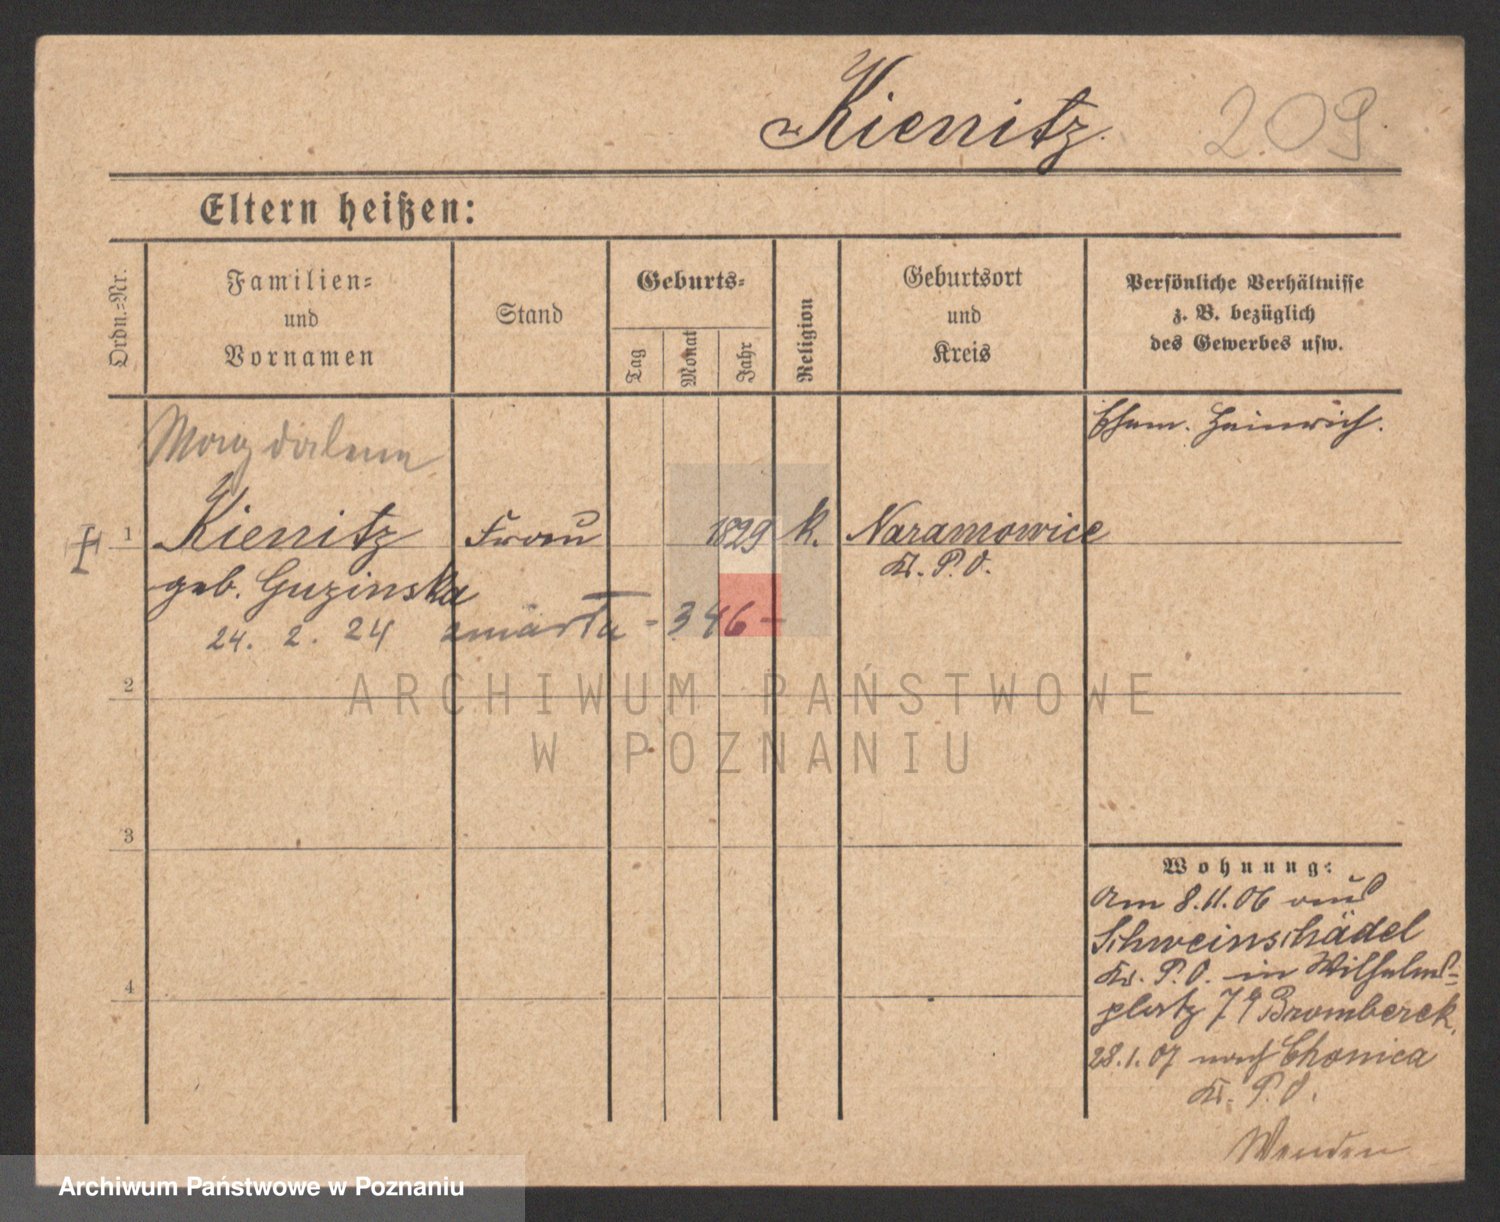 Kienitz. 209
Eltern heißen:
Ordn.-Nr.
Familien-
und
Vornamen
Stand
Geburts-
Tag
Monat
Jahr
Religion
Geburtsort
und
Kreis
Persönliche Verhältnisse
z. B. bezüglich
des Gewerbes usw.
Magdalena
Ehem. Heinrich.
1 Kienitz Frau 1829 k. Naramowice
geb. Guzinska Kr. P. O.
24. 2. 24 zmarła - 346 -
ARCHIWUM PAŃSTWOWE
W POZNANIU
2
3
4
Wohnung:
Am 8.11.06 aus
Schweinschädel
Kr. P. O. in Wilhelms-
platz 7 Bromberek.
28.1.07 nach Chonica
Kr. P. O.
Wenden
Archiwum Państwowe w Poznaniu